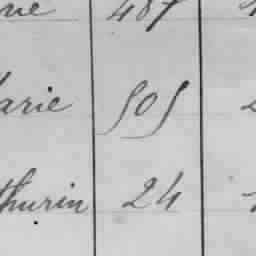 487
arie 505
thurin 24